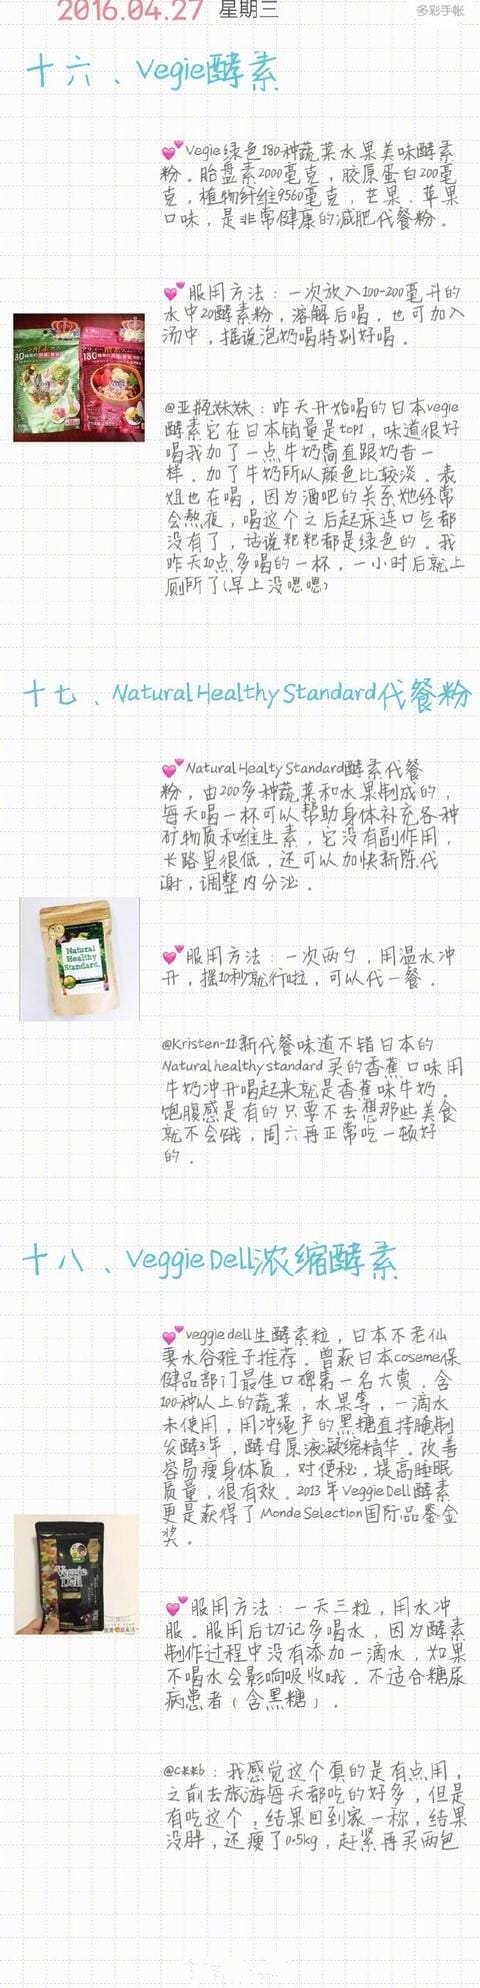 2016.04.27 星期三
多彩手帐
十六、Vegie酵素
Vegie绿色180种蔬菜水果美味酵素
粉。胎盘素2000毫克，胶原蛋白200毫
克，植物纤维9560毫克，芒果、苹果
口味，是非常健康的减肥代餐粉。
服用方法：一次放入100-200毫升的
水中20酵素粉，溶解后喝，也可加入
汤中，据说泡奶喝特别好喝。
@亚瓶妹妹：昨天开始喝的日本vegie
酵素它在日本销量是top1，味道很好
喝我加了一点牛奶简直跟奶昔一
样。加了牛奶所以颜色比较淡。表
姐也在喝，因为酒吧的关系她经常
会熬夜，喝这个之后起床连口气都
没有了，话说粑粑都是绿色的。我
昨天10点多喝的一杯，一小时后就上
厕所了(早上没嗯嗯)
十七、Natural Healthy Standard代餐粉
Natural Healty Standard酵素代餐
粉，由200多种蔬菜和水果制成的，
每天喝一杯可以帮助身体补充各种
矿物质和维生素，它没有副作用，
长路里很低，还可以加快新陈代
谢，调整内分泌。
Natural
Healthy
Standard.
服用方法：一次两勺，用温水冲
开，摇10秒就行啦，可以代一餐。
@Kristen-11:新代餐味道不错日本的
Natural healthy standard 买的香蕉口味用
牛奶冲开喝起来就是香蕉味牛奶。
饱腹感是有的只要不去想那些美食
就不会饿，周六再正常吃一顿好
的。
十八、Veggie Dell浓缩酵素
veggie dell生酵素粒，日本不老仙
妻水谷雅子推荐。曾获日本coseme保
健品部门最佳口碑第一名大赏。含
100种以上的蔬菜，水果等，一滴水
未使用，用冲绳产的黑糖直接腌制
发酵3年，酵母原液凝缩精华。改善
容易瘦身体质，对便秘，提高睡眠
质量，很有效。2013年Veggie Dell酵素
更是获得了Monde Selection国际品鉴金
奖。
Veggie
Dell
服用方法：一天三粒，用水冲
服。服用后切记多喝水，因为酵素
制作过程中没有添加一滴水，如果
不喝水会影响吸收哦。不适合糖尿
病患者（含黑糖）。
@c**b：我感觉这个真的是有点用，
之前去旅游每天都吃的好多，但是
有吃这个，结果回到家一称，结果
没胖，还瘦了0.5kg，赶紧再买两包